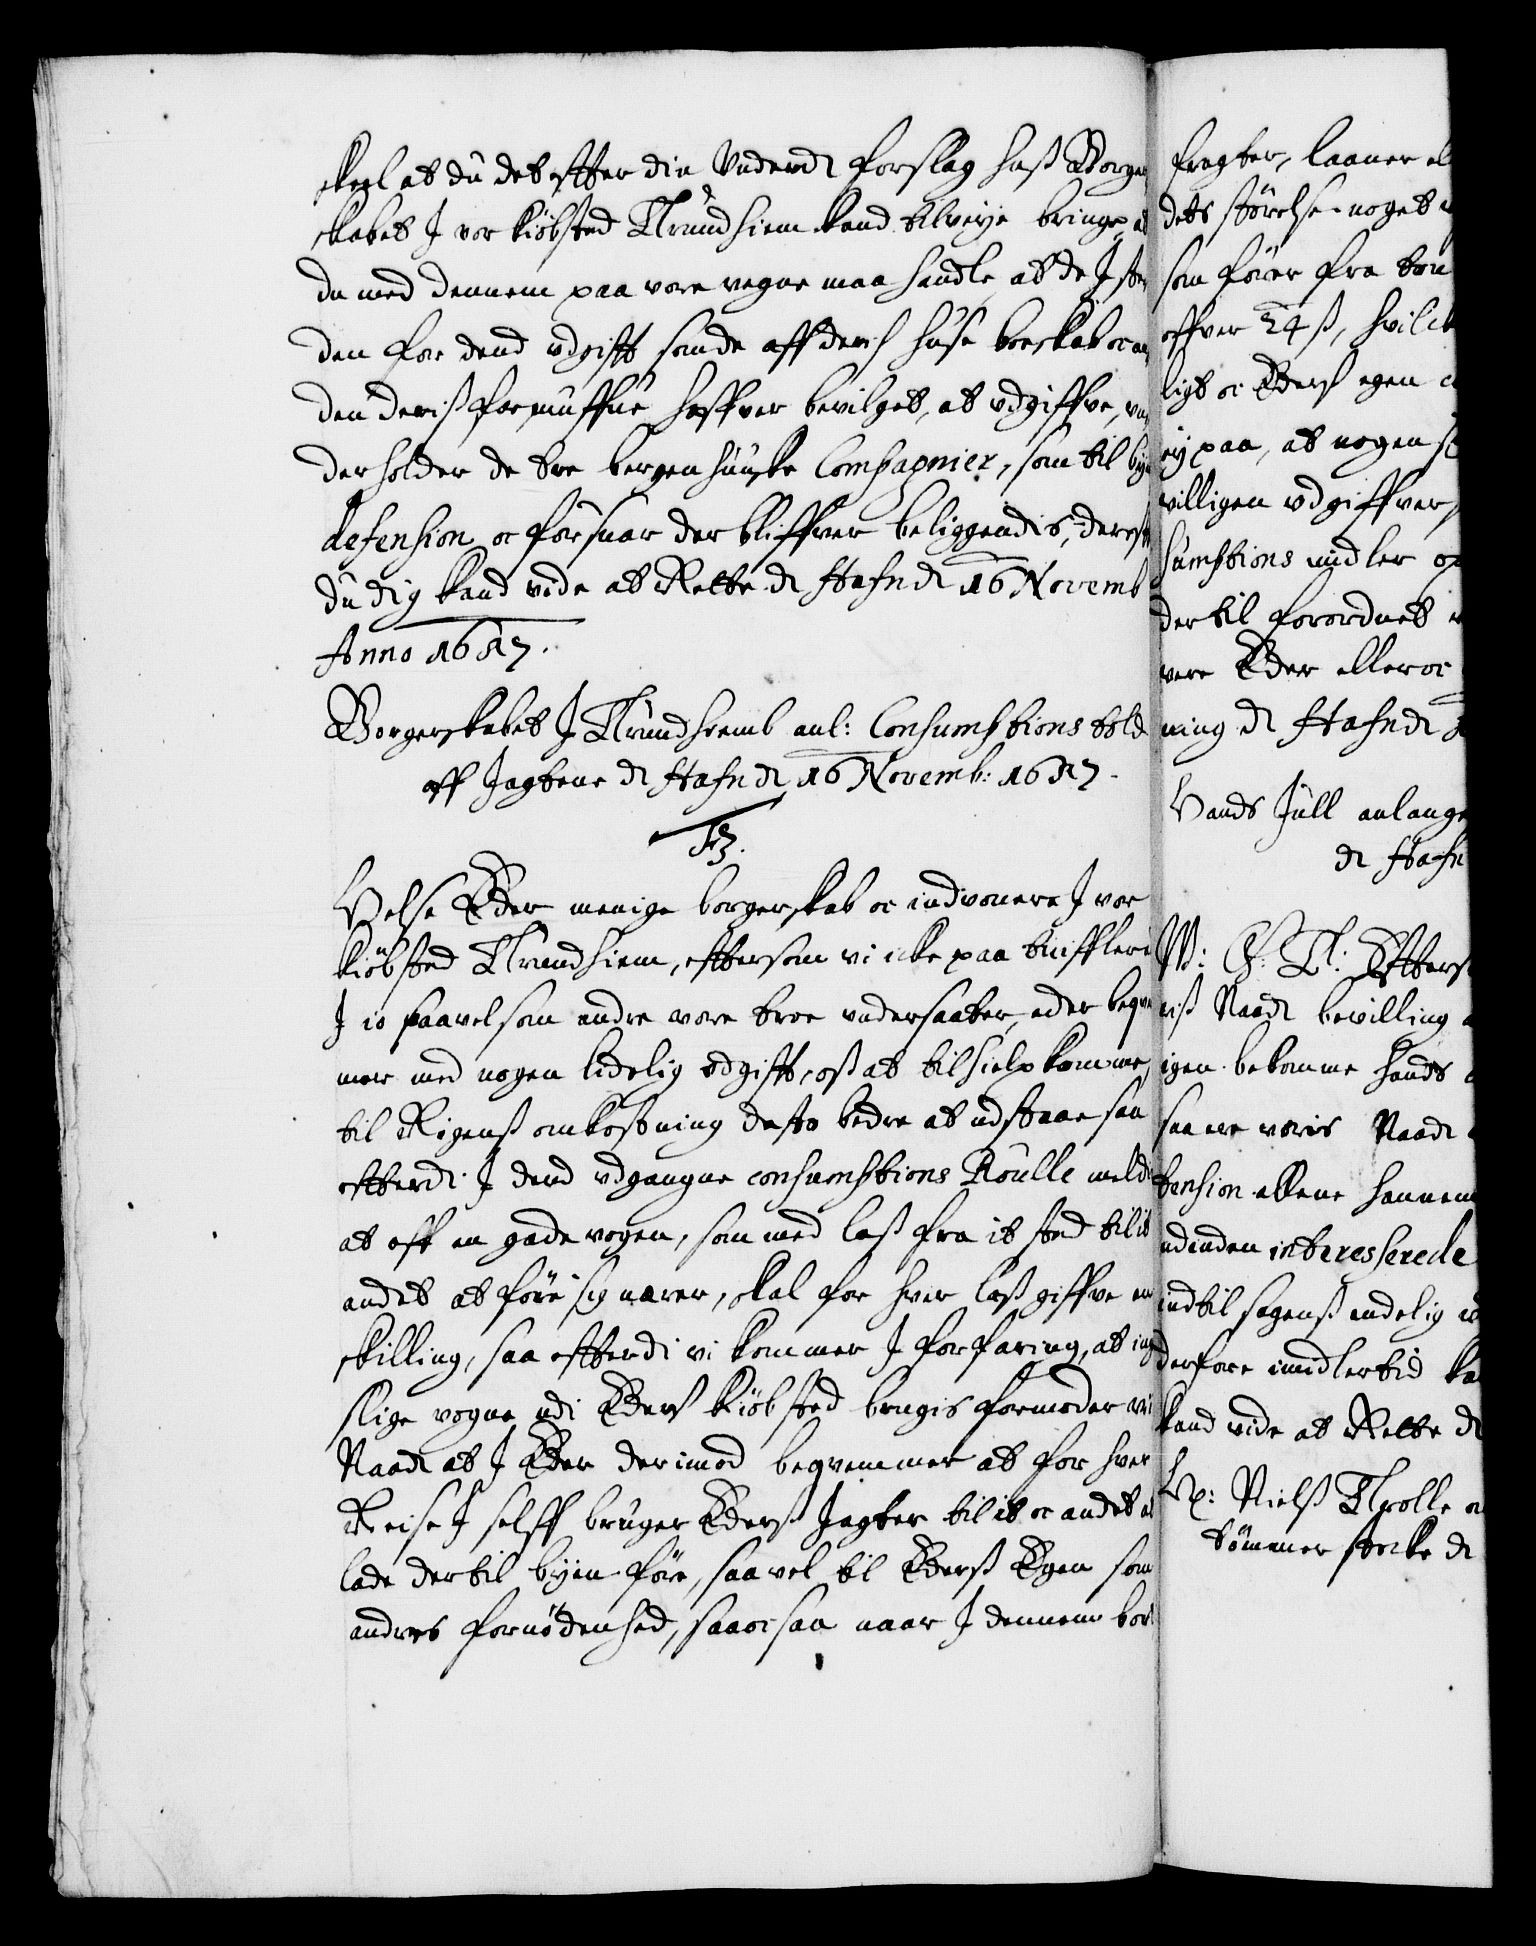 skeel at du det effter din Underd: forslag hoß Borger
skabet J vor kiöbsted Trundhiem kand tilveye bringe, at
du med dennem paa vore vegne maa handle, at de J ste
den for dend udgifft som de aff deriß huse boeskab oc an
den deriß formuffue haffver bevilget, at udgiffve, un
derholder de tre bergenhuuske Compagnier, som til byens
defension oc forsuar der bliffver beliggendis, der effter
du dig kand vide at Rette d: Hafn d: 16 Novemb
Anno 1657.
Borgerskabet J Trundhiemb anl: Consumptions told
aff Jagterne d: Hafn d: 16 Novemb: 1657.
F3.
Velse Eder menige borgerskab oc indvonere J vor
kiöbsted Trundhiem, effter som vi icke paa tuiffler
J io saavel som andre vore troe undersaatter, eder beqve
mer med nogen lidelig udgifft, oß at til hielp komme,
til Rigenß omkostning desto bedre at udstaae saa
effterdi J dend udgangne consumptions Roulle meldis
at aff en gade vogen, som med laß fra it sted til it
andet at före sig nærer, skal for hver laß giffve en
skilling, saa effterdi vi kommer J forfaring, at ing
slige vogne udi Ederß kiöbsted brugis formoder vi
Naad: at J Eder derimod beqvemmer at for hver
Reise J selff bruger Ederß Jagter til it oc andet at
lade der til byen före, saavel til Ederß Egen som
andres fornödenhed, saa oc saa naar J dennem bort
fragter, laaner el
dets störelse noget
som förer fra ton
offver 24 ß, hvilcket
ligt oc Ederß egen
ey paa, at nogen
villigen udgiffver,
sumptions midler op
der til forordnet
vere Eder eller oc
ning d: Hafn d:
Vands Jull anlange
d: Hafn
W: G: T: Efftersom
riß Naad: bevilling
igen bekomme hands
saa ere voris Naad:
tension allene hannem
uden den interesserede
indtil sagenß endelig
derfore imidlertid
kand vide at Rette d:
Nielß Trolle
tömmer stocke d: